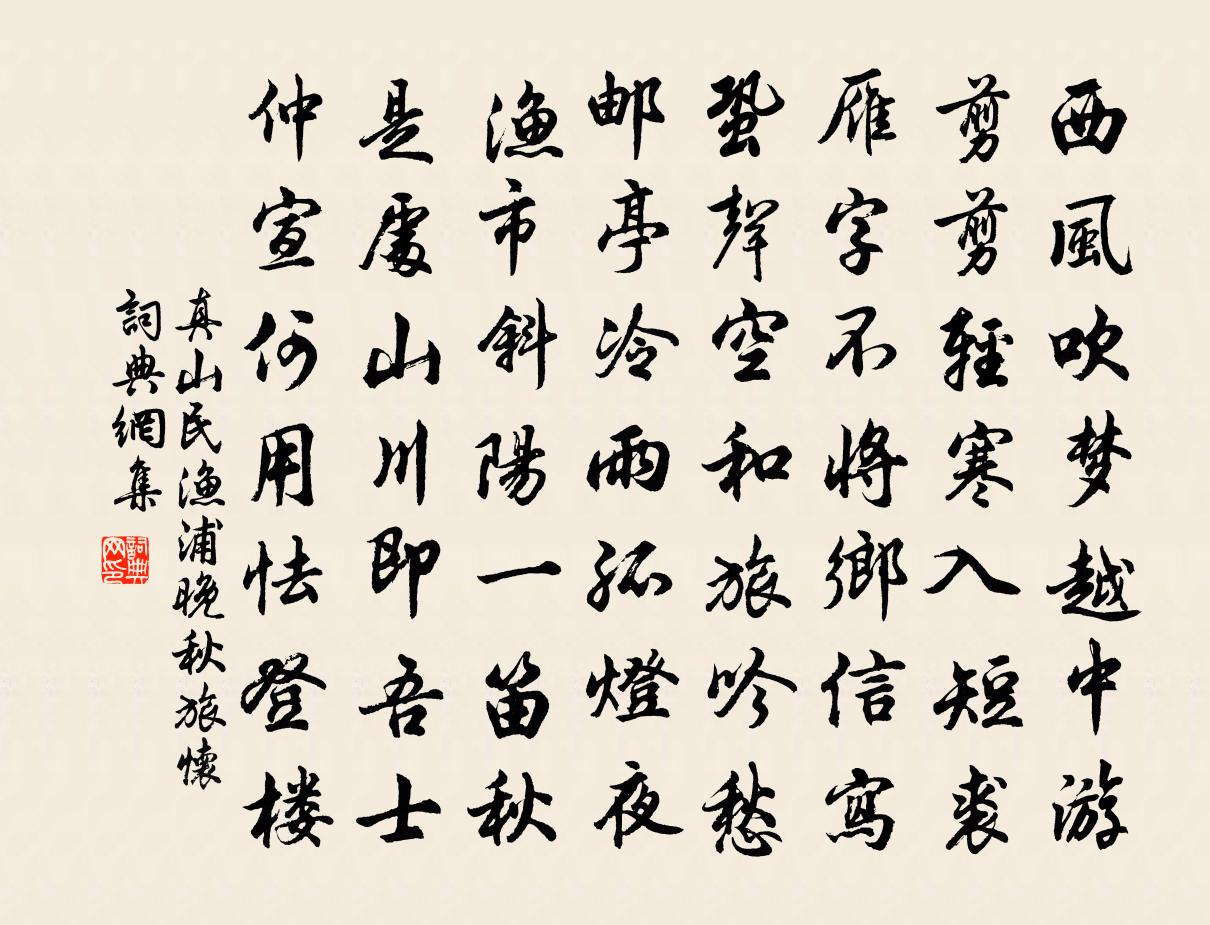 西風吹梦越中游
剪剪輕寒入短裘
雁字不將鄉信寫
蛩聲空和旅吟愁
邮亭冷雨孤燈夜
漁市斜陽一笛秋
是處山川即吾士
仲宣何用怯登楼
真山民漁浦晚秋旅懷
詞典網集
詞典网印